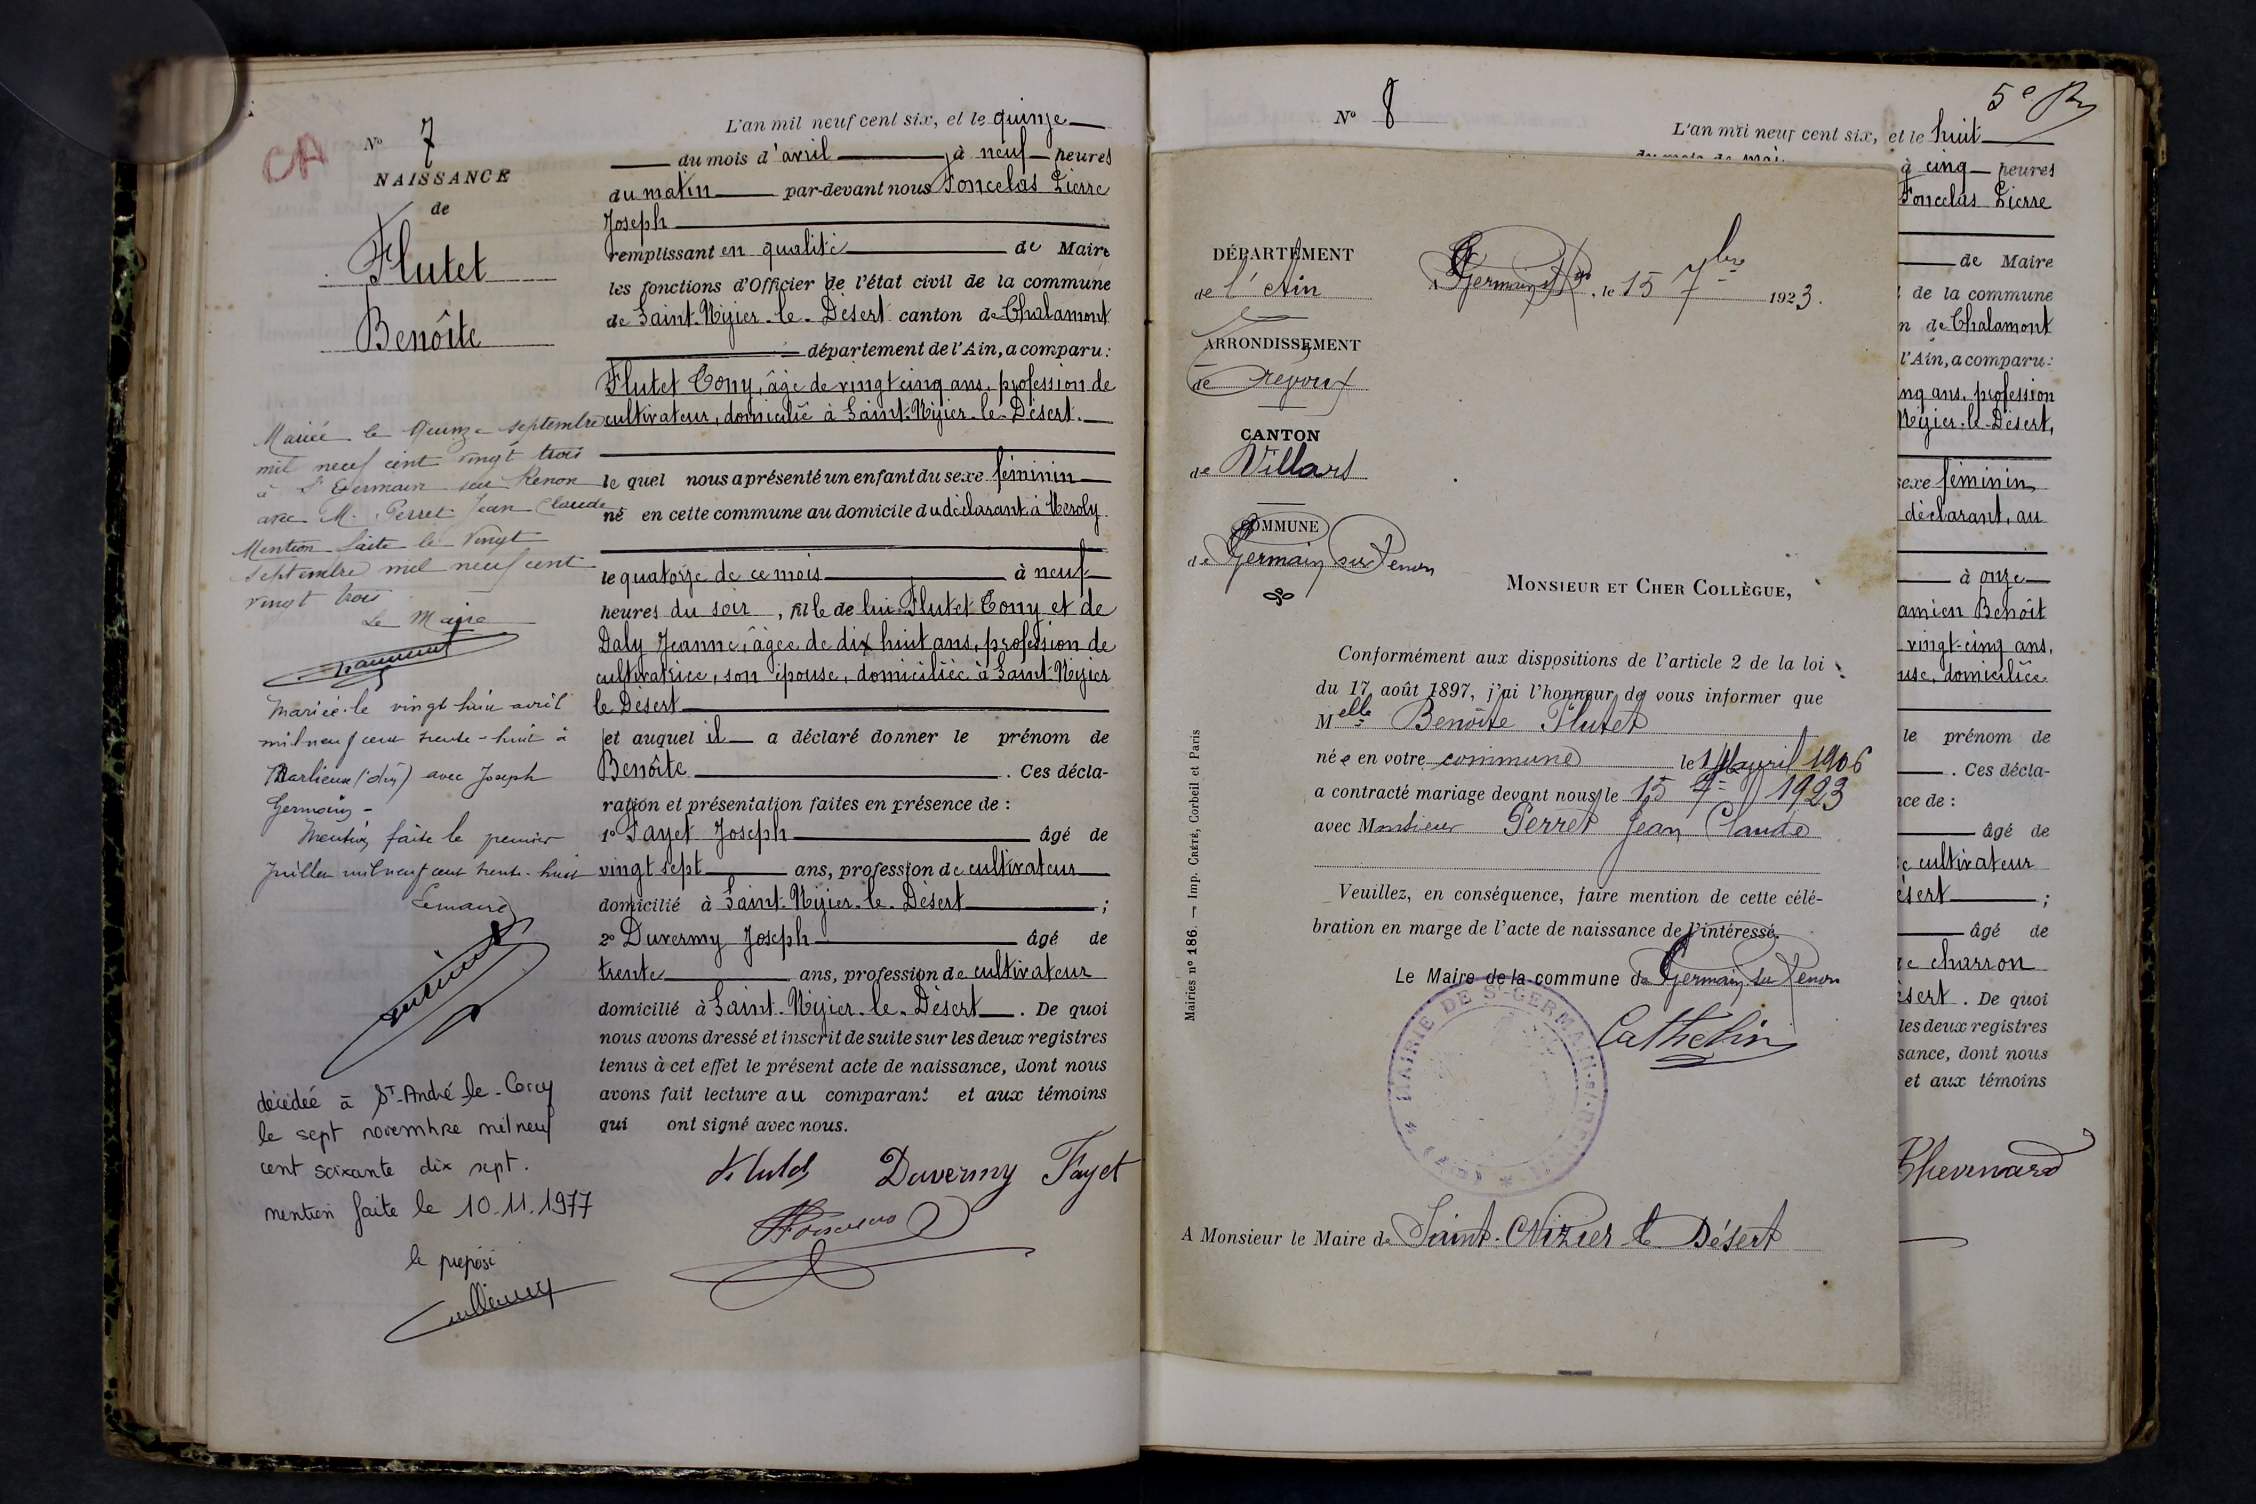 CA
N° 7
NAISSANCE
de
Flutet
Benôîte
Mariée le Quinze septembre
mil neuf cent vingt trois
à St Germain sur Renon
avec M. Perret Jean Claude
Mention faite le Vingt
septembre mil neuf cent
vingt trois
Le Maire
Mariée le vingt huit avril
mil neuf cent trente-huit à
Marlieux (Ain) avec Joseph
Germain -
Mention faite le premier
Juillet mil neuf cent trente-huit
Le maire
décédée à St-André-le-Corcy
le sept novembre mil neuf
cent soixante dix sept.
mention faite le 10.11.1977
le préposé
L'an mil neuf cent six, et le quinze
du mois d'avril à neuf heures
du matin par-devant nous Foncelas Pierre
Joseph
remplissant en qualité de Maire
les fonctions d'Officier de l'état civil de la commune
de Saint-Nizier-le-Désert canton de Chalamont
département de l'Ain, a comparu:
Flutet Tony, âgé de vingt cinq ans, profession de
cultivateur, domicilié à Saint-Nizier-le-Désert.
le quel nous a présenté un enfant du sexe féminin
né en cette commune au domicile du déclarant, à
le quatorze de ce mois à neuf
heures du soir, fille de lui Flutet Tony et de
Daly Jeanne, âgée de dix huit ans, profession de
cultivatrice, son épouse, domiciliée à Saint-Nizier
le Désert
et auquel il a déclaré donner le prénom de
Benôîte. Ces décla-
ration et présentation faites en présence de:
1° Fayet Joseph âgé de
vingt sept ans, profession de cultivateur
domicilié à Saint-Nizier-le-Désert;
2° Duvermy Joseph âgé de
trente ans, profession de cultivateur
domicilié à Saint-Nizier-le-Désert. De quoi
nous avons dressé et inscrit de suite sur les deux registres
tenus à cet effet le présent acte de naissance, dont nous
avons fait lecture au comparant et aux témoins
qui ont signé avec nous.
Flutet Duvermy Fayet
N° 8
5e
L'an mil neuf cent six, et le huit
du mois de mai
à cinq heures
Foncelas Pierre
de Maire
de la commune
n de Chalamont
l'Ain, a comparu:
inq ans, profession
Nizier-le-Désert,
sexe féminin,
déclarant, au
à onze
amien Benoît
vingt-cinq ans,
use, domiciliée
le prénom de
. Ces décla-
nce de:
âgé de
e cultivateur
ésert;
âgé de
e charron
ésert. De quoi
les deux registres
sance, dont nous
et aux témoins
Chevenard
DÉPARTEMENT
de l'Ain
ARRONDISSEMENT
de Trévoux
CANTON
de Villars
COMMUNE
de St Germain sur Renon
A St Germain s/ Ron, le 15 7bre 1923.
MONSIEUR ET CHER COLLÈGUE,
Conformément aux dispositions de l'article 2 de la loi
du 17 août 1897, j'ai l'honneur de vous informer que
Melle Benôite Flutet
née en votre commune le 14 avril 1906
a contracté mariage devant nous le 15 7re 1923
avec Monsieur Perret Jean Claude
Veuillez, en conséquence, faire mention de cette célé-
bration en marge de l'acte de naissance de l'intéressé.
Le Maire de la commune de St Germain sur Renon
Cathelin
MAIRIE DE ST-GERMAIN-S-RENON * (AIN) *
A Monsieur le Maire de Saint-Nizier-le Désert
Mairies n° 186. — Imp. CRÉTÉ, Corbeil et Paris